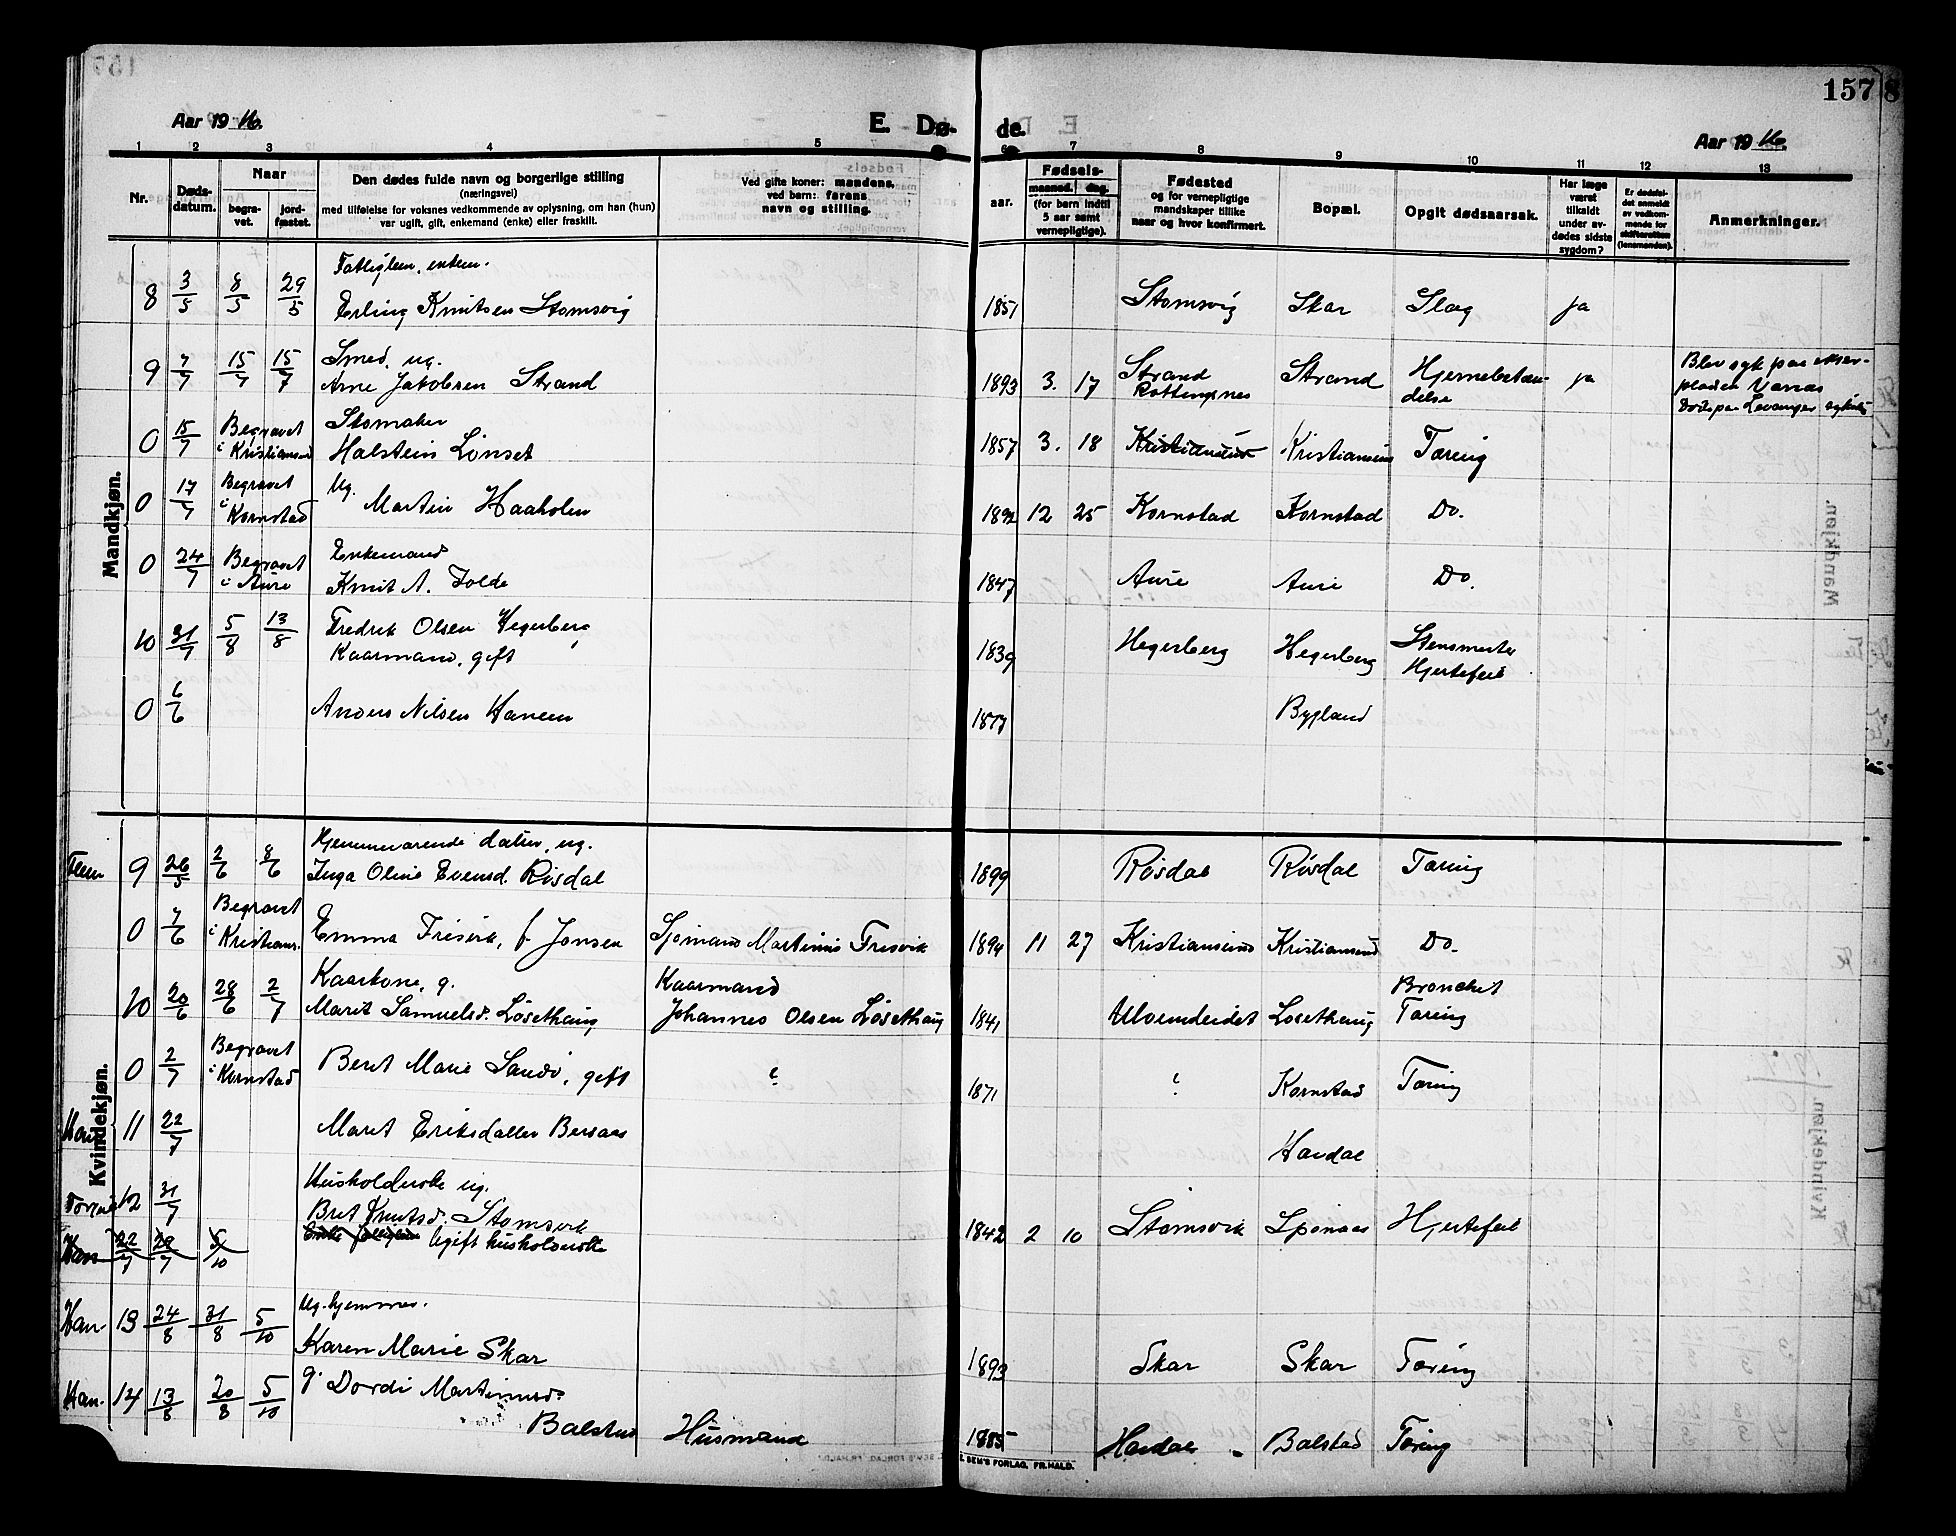 157
Aar 1916.
E. Dø- de.
Aar 1916.
1 2 3 4 5 6 7 8 9 10 11 12 13
Nr.
Døds-
datum.
Naar
begra-
vet.
jord-
fæstet.
Den dødes fulde navn og borgerlige stilling
(næringsvei)
med tilføielse for voksnes vedkommende av oplysning, om han (hun)
var ugift, gift, enkemand (enke) eller fraskilt.
Ved gifte koner: mandens,
ved børn: farens
navn og stilling.
aar.
Fødsels-
maaned. dag.
(for børn indtil
5 aar samt
vernepligtige).
Fødested
og for vernepligtige
mandskaper tillike
naar og hvor konfirmert.
Bopæl.
Opgit dødsaarsak.
Har læge
været
tilkaldt
under av-
dødes sidste
sygdom?
Er dødsfal-
det anmeldt
av vedkom-
mende for
skifteretten
(lensmanden).
Anmerkninger.
Mandkjøn.
8 3/5 8/5 29/5 Erling Knutsen Stomsvig 1851 Stomsvig Skar Slag ja
Smed, ug.
9 7/7 15/7 15/7 Arne Jakobsen Strand 1893 3. 17 Strand Strand Hjernebetæn-
delse ja
Blev syk paa ekser-
pladsen
Levanger
0 15/7 Begravet
i Kristiansund
Halstein Lønset 1857 3. 18 Kristiansund Kristiansund Tæring
0 17/7 Begravet
i Kornstad
Ug.
Martin Haaholm 1892 12 25 Kornstad Kornstad Do.
0 24/7 Begravet
i Aure
Enkemand
Knut A. Tolde 1847 Aure Aure Do.
10 31/7 5/8 13/8 Fredrik Olsen Hegerberg
Kaarmand, gift 1839 Hegerberg Hegerberg
Hjertefeil
0 6/6 Anders Nilsen Hanem 1877 Bygland
Kvindekjøn.
Hjemmeværende datter, ug.
9 26/5 2/6 8/6 Inga Oline Evensd. Røsdal 1899 Røsdal Røsdal Tæring
0 7/6 Begravet
i Kristians.
Emma , f. Jonsen Sjømand Martinus Fresvik 1894 11 27 Kristiansund Kristiansund Do.
Kaarkone, g.
10 20/6 28/6 2/7 Marit Samuelsd. Løsethaug
Kaarmand
Johannes Olsen Løsethaug 1841 Ulvundeidet Løsethaug
Bronchit
Tæring
0 2/7 Begravet
i Kornstad
Beret Marie Sandø, gift ? 1871 ? Kornstad Tæring
11 22/7 Marit Eriksdatter Bersaas Haudal
Husholderske ug.
12 31/7 Bret Knutsd. Stomsvik
Ugift husholderske 1842 2 10 Stomsvik Hjertefeil
Han 22/7 29/7 5/10
Ug. hjemmev.
Han- 13 24/8 31/8 5/10 Karen Marie Skar 1893 Skar Skar Tæring
Han- 14 13/8 20/8 5/10 g. Dordi Martinusd.
Balstad Husmand 1885 Haudal - Balstad Tæring
SEM'S FORLAG, FR.HALD.